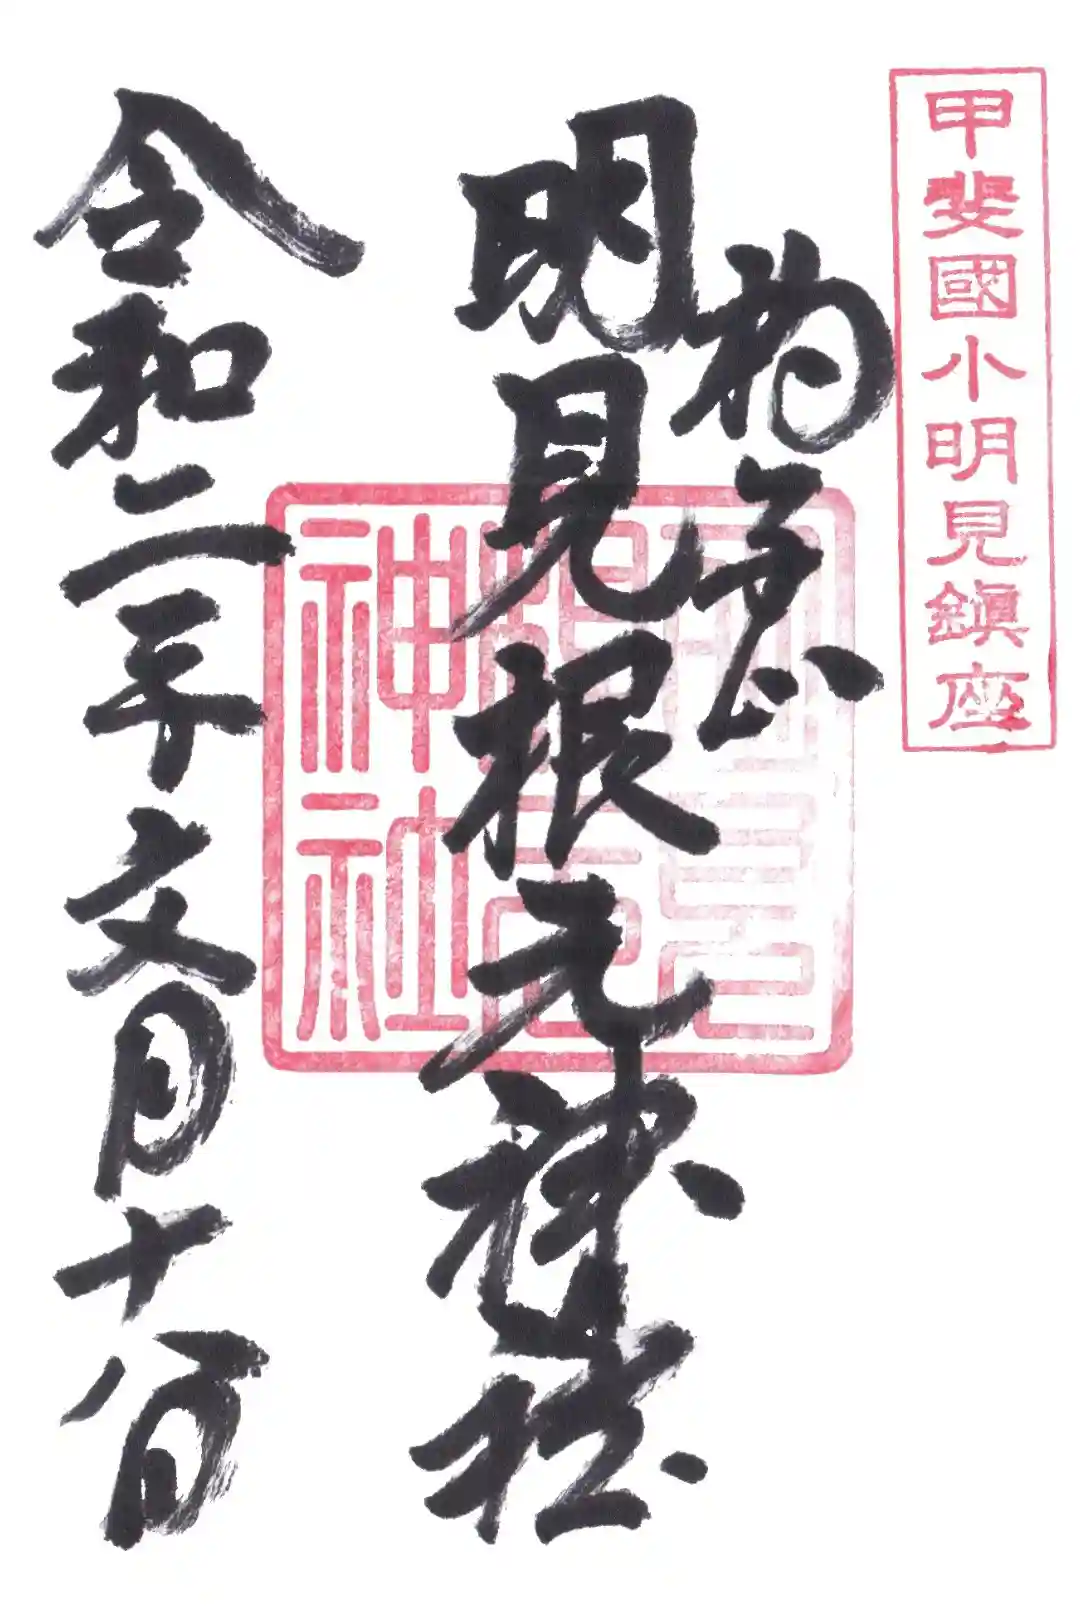 甲斐國小明見鎭座
明見根元神社
令和二年文月十八日
明見
根元
神社